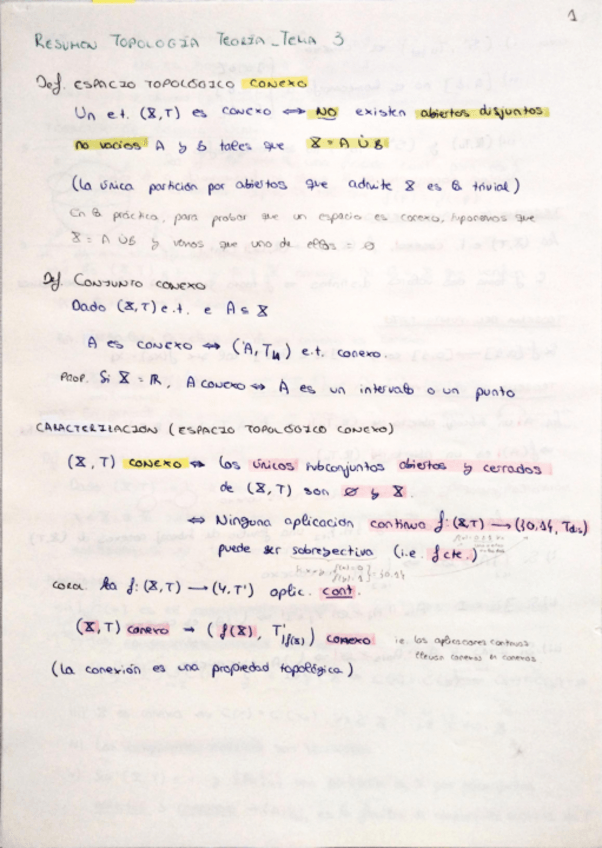 1
RESUMEN TOPOLOGÍA TEORÍA_TEMA 3
Def. ESPACIO TOPOLÓGICO CONEXO
Un e.t. (X,T) es conexo ⇔ NO existen abiertos disjuntos
no vacíos A y B tales que X = A ∪̇ B
(la única partición por abiertos que admite X es la trivial)
En la práctica, para probar que un espacio es conexo, suponemos que
X = A ∪̇ B y vemos que uno de ellos = ∅
Def. CONJUNTO CONEXO
Dado (X,T) e.t. e A ⊆ X
A es conexo ⇔ (A, T|A) e.t. conexo.
PROP. Si X = ℝ, A conexo ⇔ A es un intervalo o un punto
CARACTERIZACIÓN (ESPACIO TOPOLÓGICO CONEXO)
(X,T) conexo ⇔ los únicos subconjuntos abiertos y cerrados
de (X,T) son ∅ y X.
⇔ Ninguna aplicación continua f: (X,T) → ({0,1}, Tdis)
puede ser sobreyectiva (i.e. f cte.)
COROL. Sea f: (X,T) → (Y,T') aplic. cont.
(X,T) conexo → (f(X), T'|f(X)) conexo i.e. las aplicaciones continuas
llevan conexos en conexos
(La conexión es una propiedad topológica)